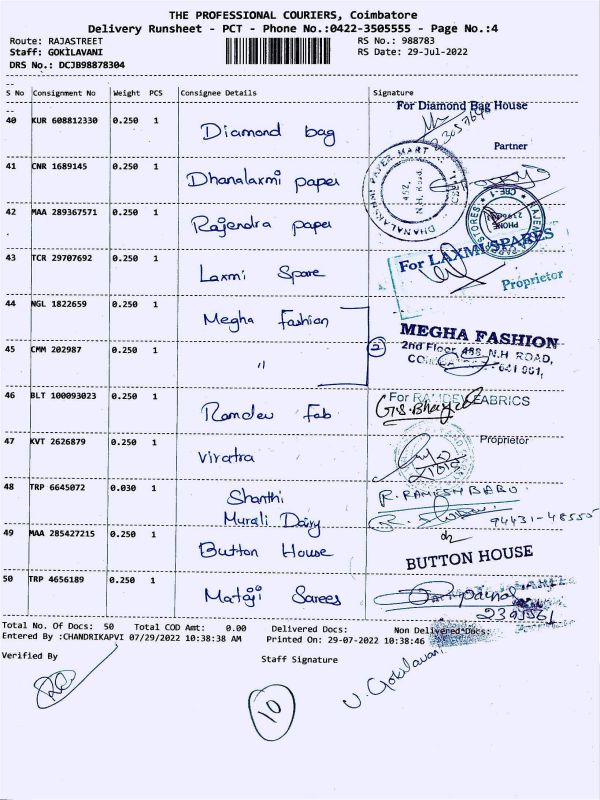 THE PROFESSIONAL COURIERS, Coimbatore
Delivery Runsheet - PCT - Phone No.:0422-3505555 - Page No.:4
Route: RAJASTREET RS No.: 988783
Staff: GOKILAVANI RS Date: 29-Jul-2022
DRS No.: DCJB98878304
S No Consignment No Weight PCS Consignee Details Signature
40 KUR 608812330 0.250 1 Diamond bag For Diamond Bag House
Partner
41 CNR 1689145 0.250 1 Dhanalaxmi paper DHANALAKSHMI PAPER MART
452, N.H. Road,
42 MAA 289367571 0.250 1 Rajendra paper
PHONE
43 TCR 29707692 0.250 1 Laxmi Spare For LAXMI SPARES
Proprietor
44 NGL 1822659 0.250 1 Megha Fashion MEGHA FASHION
2nd Floor, 488, N.H ROAD,
45 CMM 202987 0.250 1 " 2 641 001,
46 BLT 100093023 0.250 1 Ramdev Fab For RAMDEV FABRICS
Proprietor
47 KVT 2626879 0.250 1 Viratra
48 TRP 6645072 0.030 1 Shanthi R. RAMESH BABU
Murali Dairy 94431-48555
49 MAA 285427215 0.250 1 Button House BUTTON HOUSE
50 TRP 4656189 0.250 1 Mataji Sarees
Total No. Of Docs: 50 Total COD Amt: 0.00 Delivered Docs: Non Delivered Docs:
Entered By :CHANDRIKAPVI 07/29/2022 10:38:38 AM Printed On: 29-07-2022 10:38:46
Verified By Staff Signature
V. Gokilavani
10